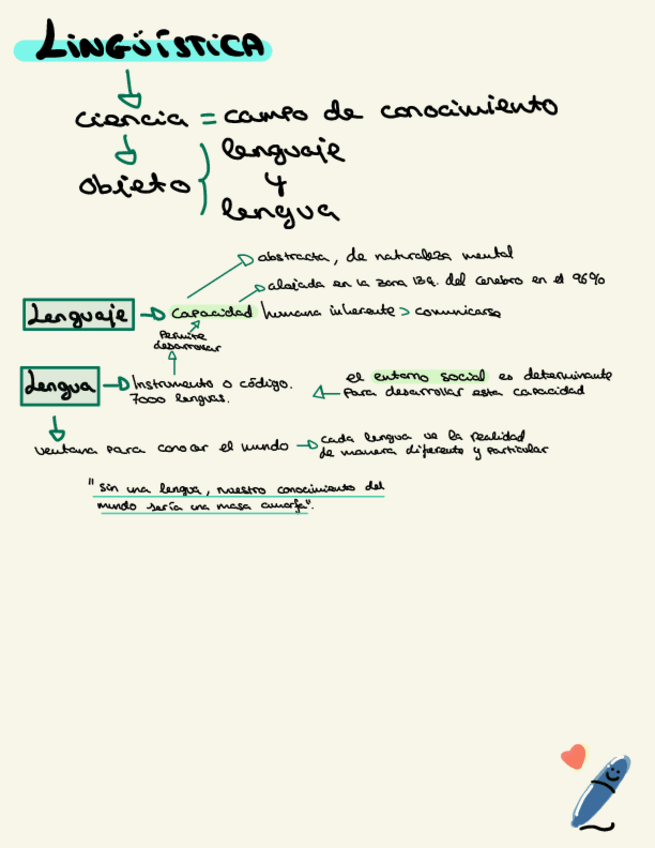 LINGÜÍSTICA
ciencia = campo de conocimiento
objeto { lenguaje
y
lengua
abstracta, de naturaleza mental
alojada en la zona izq. del cerebro en el 96%
Lenguaje → capacidad humana inherente > comunicarse
Permite
desarrollar
Lengua → Instrumento o código.
7000 lenguas.
el entorno social es determinante
para desarrollar esta capacidad
ventana para conocer el mundo → cada lengua ve la realidad
de manera diferente y particular
"sin una lengua, nuestro conocimiento del
mundo sería una masa amorfa".